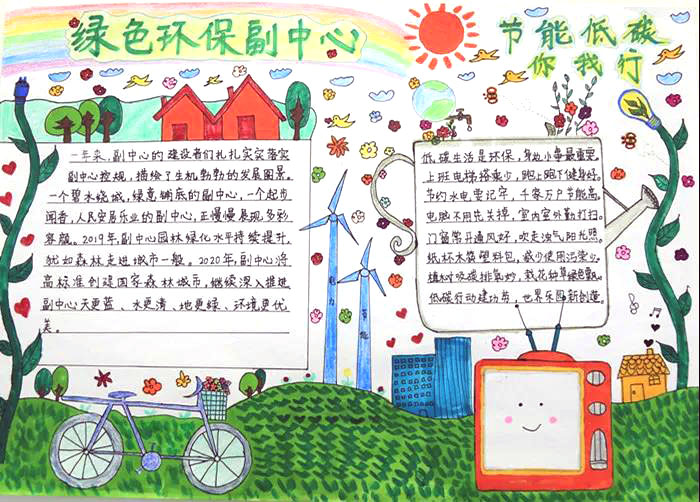 绿色环保副中心
节能低碳
你我行
一年来，副中心的建设者们扎扎实实落实
副中心控规，描绘了生机勃勃的发展图景。
一个碧水绕城，绿意铺底的副中心，一个起步
闻香，人民安居乐业的副中心，正慢慢展现多彩
容颜。2019年，副中心园林绿化水平持续提升，
犹如森林走进城市一般。2020年，副中心将
高标准创建国家森林城市，继续深入推进
副中心天更蓝、水更清、地更绿、环境更优
美。
低碳生活是环保，身边小事最重要。
上班电梯搭乘少，跑上跑下健身好。
节约水电要记牢，千家万户节能高。
电脑不用完关掉，室内室外勤打扫。
门窗常开通风好，吹走浊气阳光照。
纸杯木筷塑料包，减少使用污染少。
植树吸碳排氧妙，栽花种草绿色飘。
低碳行动建功劳，世界乐园新创造。
电力
节能